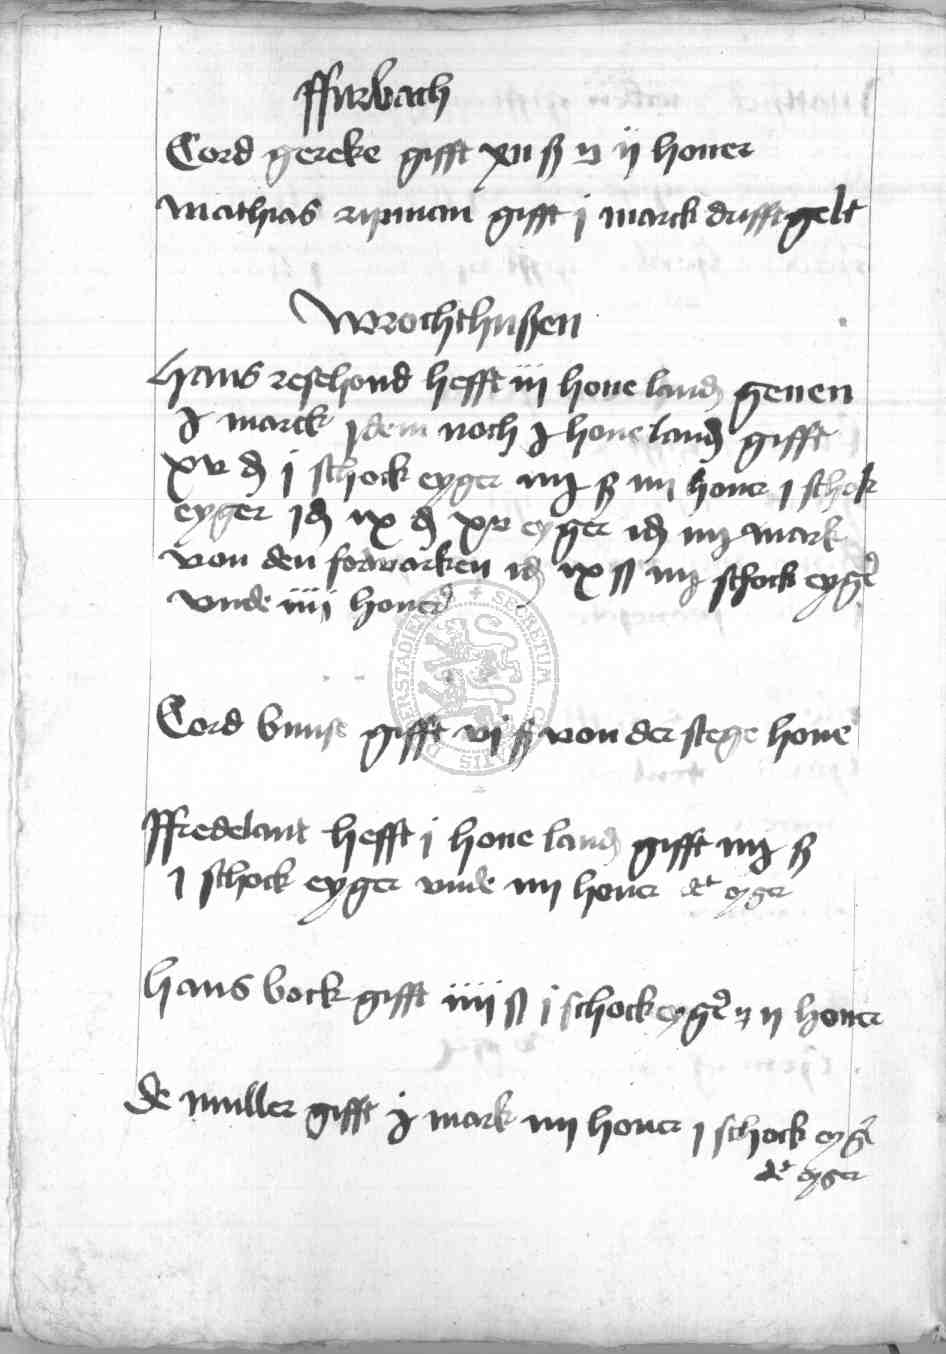 ffurbach
Cord gereke gifft xii ß ii honer
Mathias ripman gifft j marck drifftgelt
Wrochthußen
Hans resehond hefft iii houe land geuen
marck jdem noch houe land gifft
xv j schock eyger ß iiii honer j schok
eyger ix xv eyger mark
von den forwarken ix schock eyger
vnde iiij honer
Cord bunse gifft vj ß von der stege houe
ffredelant hefft j houe land gifft ß
j schock eyger vnde iiii honer dt eyger
Hans bock gifft iiii ß j schock eyger ii honer
de muller gifft mark iiii honer j schock eyger
dt eyger
SECRETUM